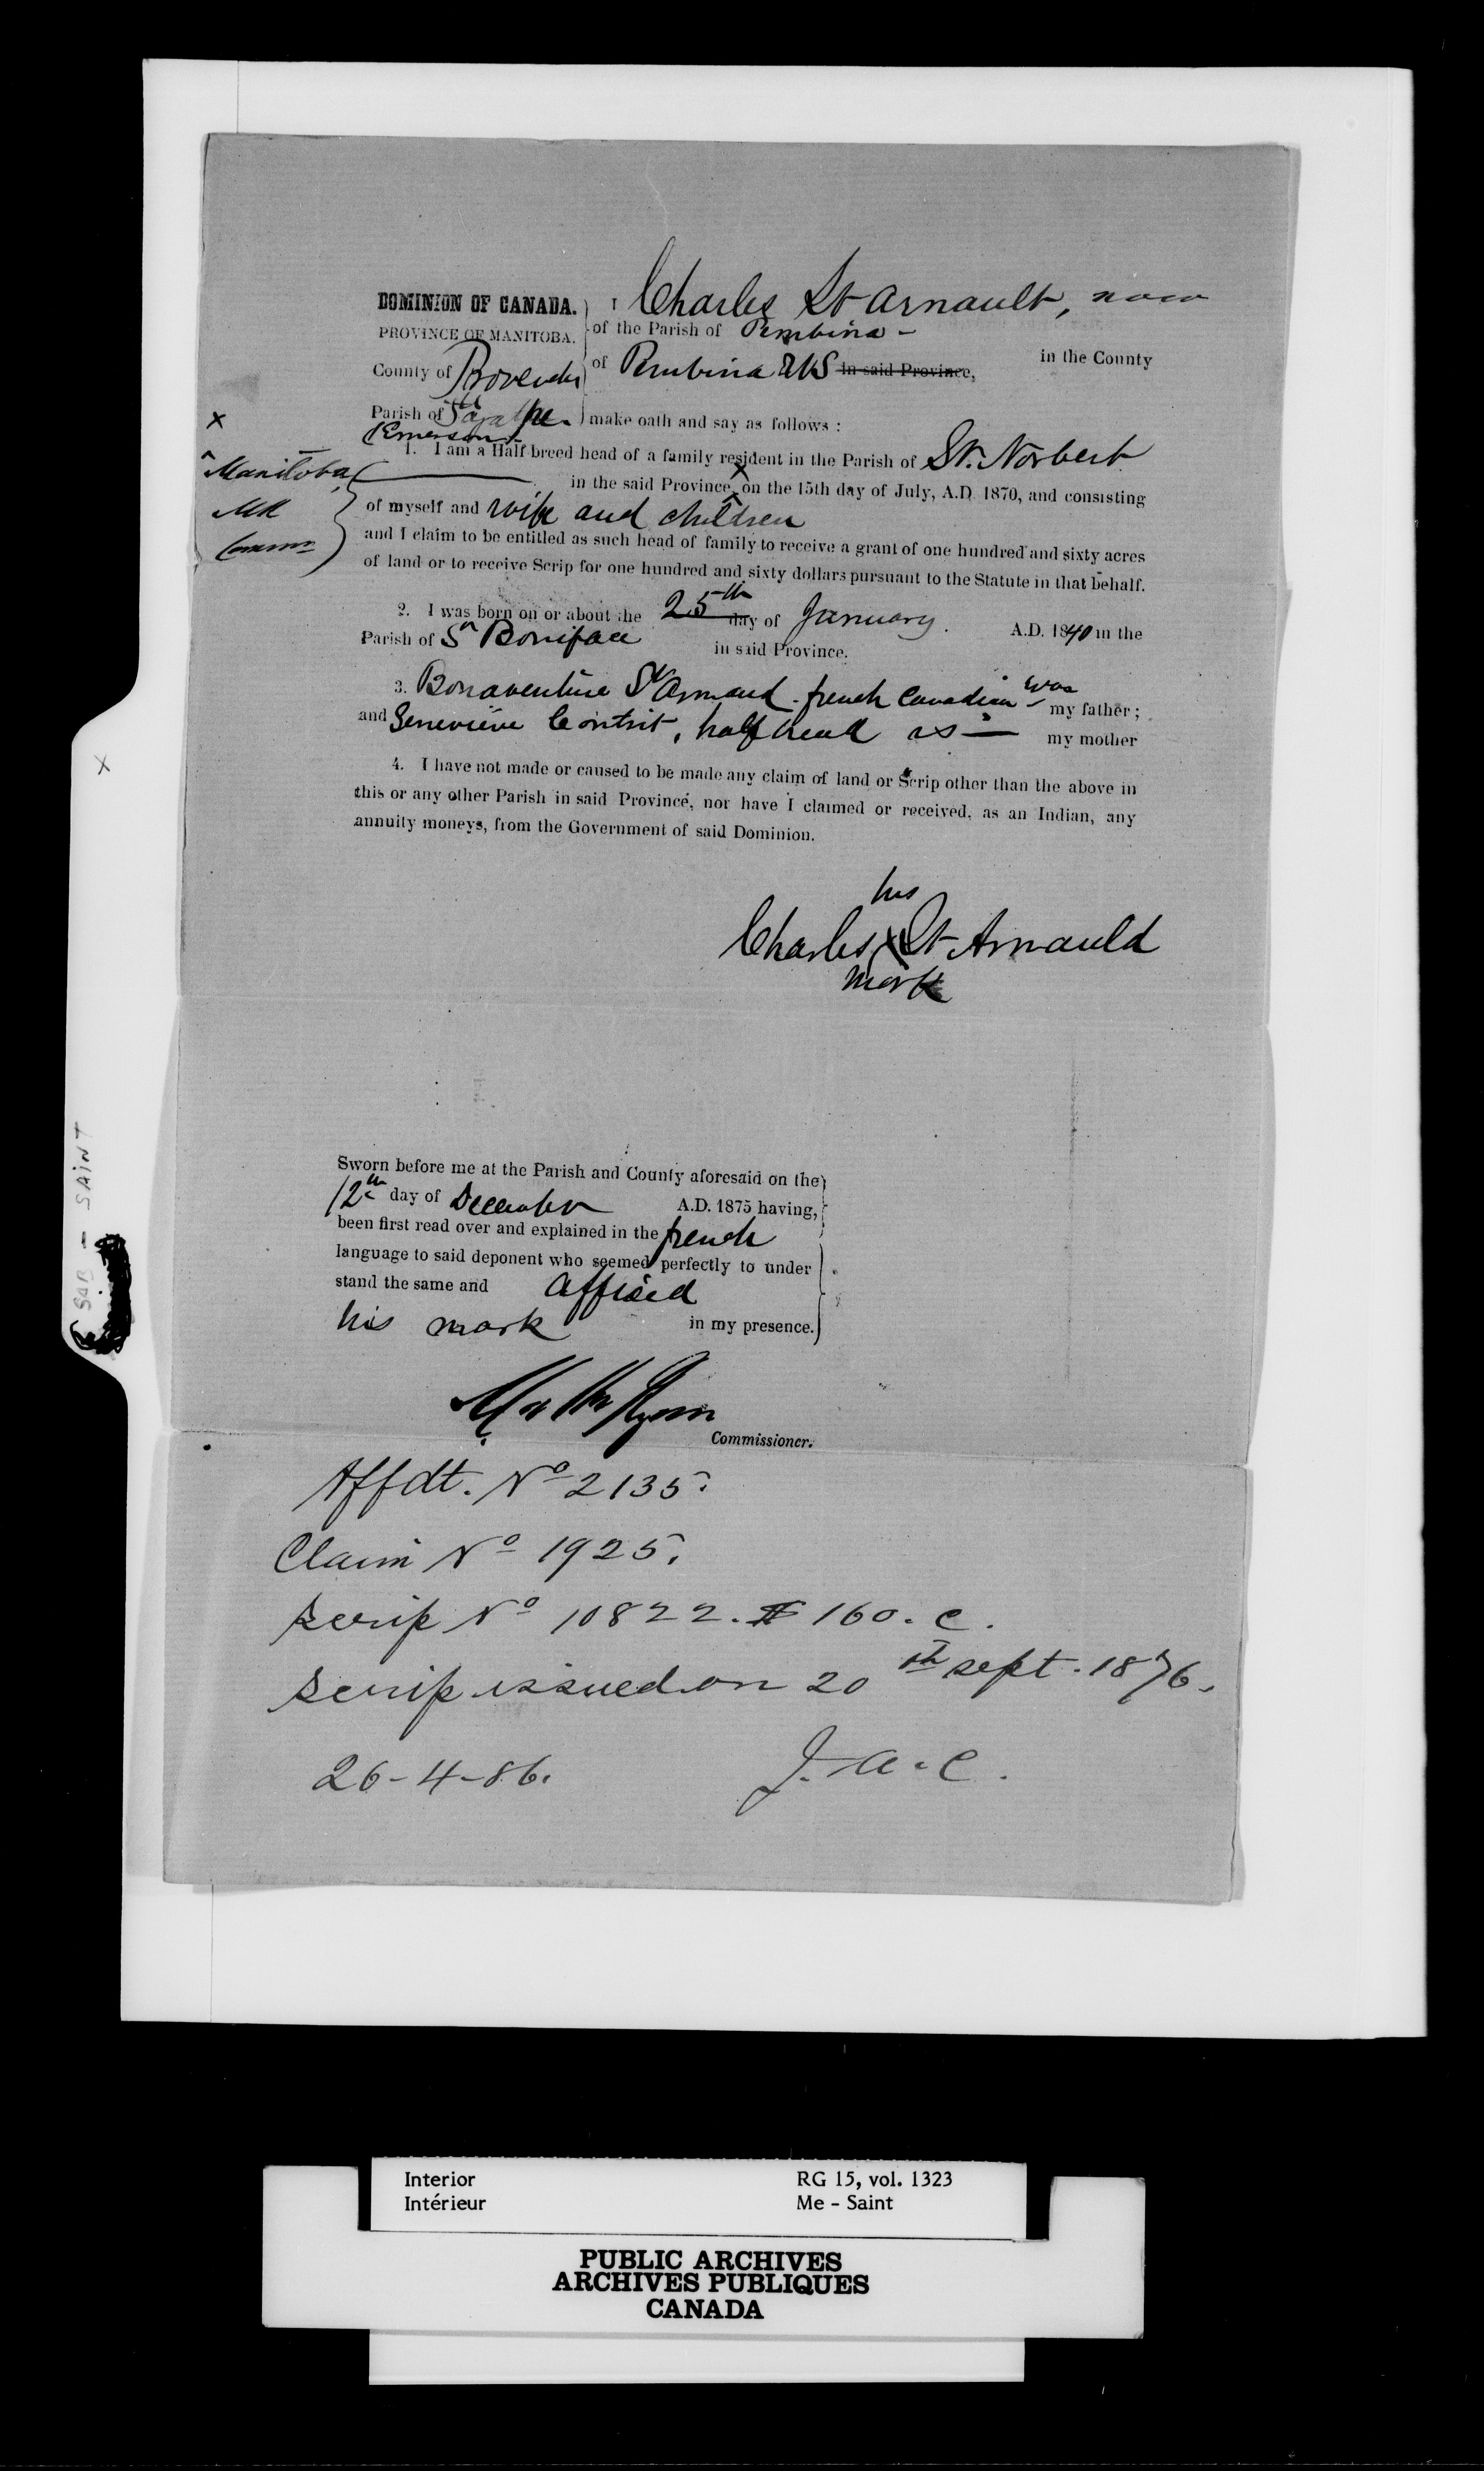 DOMINION OF CANADA. I Charles St Arnault, now
PROVINCE OF MANITOBA. of the Parish of Pembina -
County of Provencher of Pembina U.S. in said Province, in the County
Parish of Ste Agathe make oath and say as follows :
(Emerson)
1. I am a Half-breed head of a family resident in the Parish of St. Norbert
in the said Province, x on the 15th day of July, A.D. 1870, and consisting
x
Manitoba
MR
Commr
of myself and wife and children
and I claim to be entitled as such head of family to receive a grant of one hundred and sixty acres
of land or to receive Scrip for one hundred and sixty dollars pursuant to the Statute in that behalf.
2. I was born on or about the 25th day of January. A.D. 1840 in the
Parish of St Boniface in said Province.
3. Bonaventure St Armand french Canadian was my father ;
and Genevieve Contrit, half breed is my mother
x
4. I have not made or caused to be made any claim of land or Scrip other than the above in
this or any other Parish in said Province, nor have I claimed or received, as an Indian, any
annuity moneys, from the Government of said Dominion.
his
Charles x St Arnauld
mark
SAB - SAINT
Sworn before me at the Parish and County aforesaid on the
12th day of December A.D. 1875 having,
been first read over and explained in the french
language to said deponent who seemed perfectly to under
stand the same and affixed
his mark in my presence.
Matt Ryan
Commissioner.
Affdt. No 2135.
Claim No 1925.
Scrip No 10822. $ 160. c.
Scrip issued on 20th sept. 1876.
26-4-86. J. A. C.
Interior RG 15, vol. 1323
Intérieur Me - Saint
PUBLIC ARCHIVES
ARCHIVES PUBLIQUES
CANADA